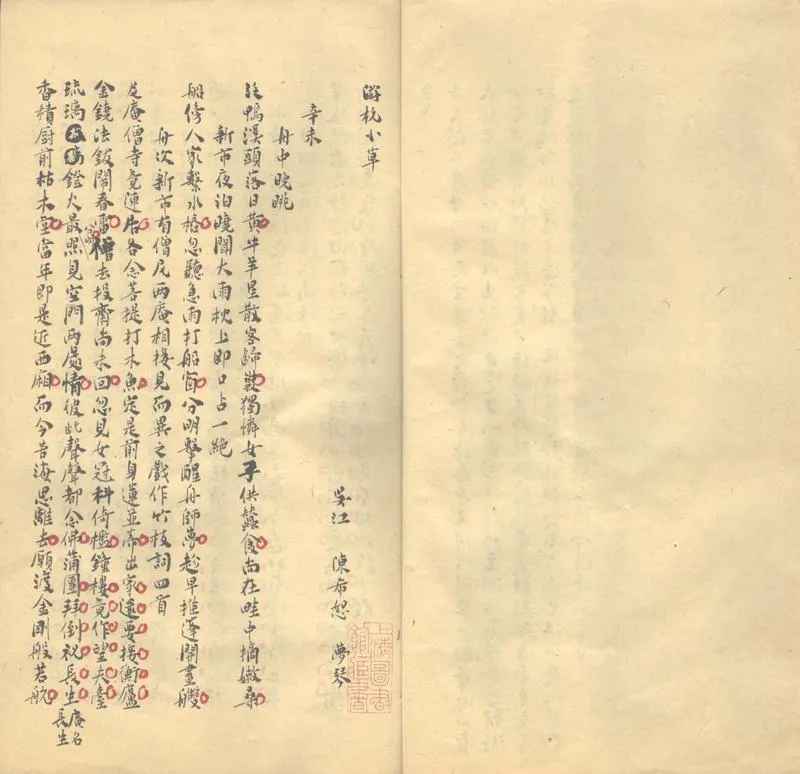 游杭小草
吳江 陳希恕 夢琴
上海圖書館藏書
辛未
舟中晚眺
鴨溪頭落日黃牛羊星散客歸裝獨憐女子供蠶食尚在畦中摘嫩桑
新市夜泊曉聞大雨枕上即口占一絕
船傍人家繫水樁忽聽急雨打船窗分明擊醒舟師夢趁早推蓬開畫艭
舟次新市有僧尼兩庵相接見而異之戲作竹枝詞四首
尼庵僧寺竟連居各念菩提打木魚定是前身蓮並蒂出家還要接衡廬
金鐃法鈸鬧春雷僧去投齋尚未回忽見女冠科倚檻鐘樓竟作望夫臺
琉璃鐙火最分明照見空門兩處情彼此聲聲都念佛蒲團拜倒祝長生庵名長生
香積廚前枯木堂當年即是近西廂而今苦海思離去願渡金剛般若航